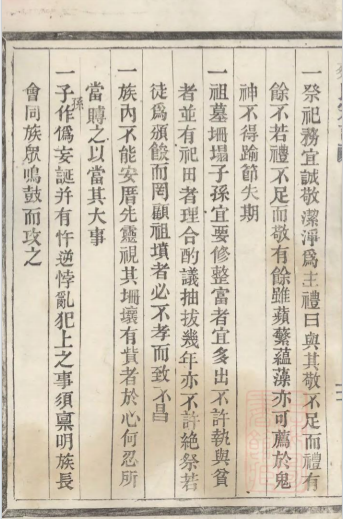 一祭祀務宜誠敬潔淨為主禮曰與其敬不足而禮有
餘不若禮不足而敬有餘雖蘋蘩蘊藻亦可薦於鬼
神不得踰節失期
一祖墓坍塌子孫宜要修整富者宜多出不許執與貧
者並有祀田者理合酌議抽拔幾年亦不許絕祭若
徒為頒餕而罔顧祖墳者必不孝而致不昌
一族內不能安厝先靈視其坍壞有貲者於心何忍所
當賻之以當其大事
一子孫作為妄誕并有忤逆悖亂犯上之事須稟明族長
會同族眾鳴鼓而攻之